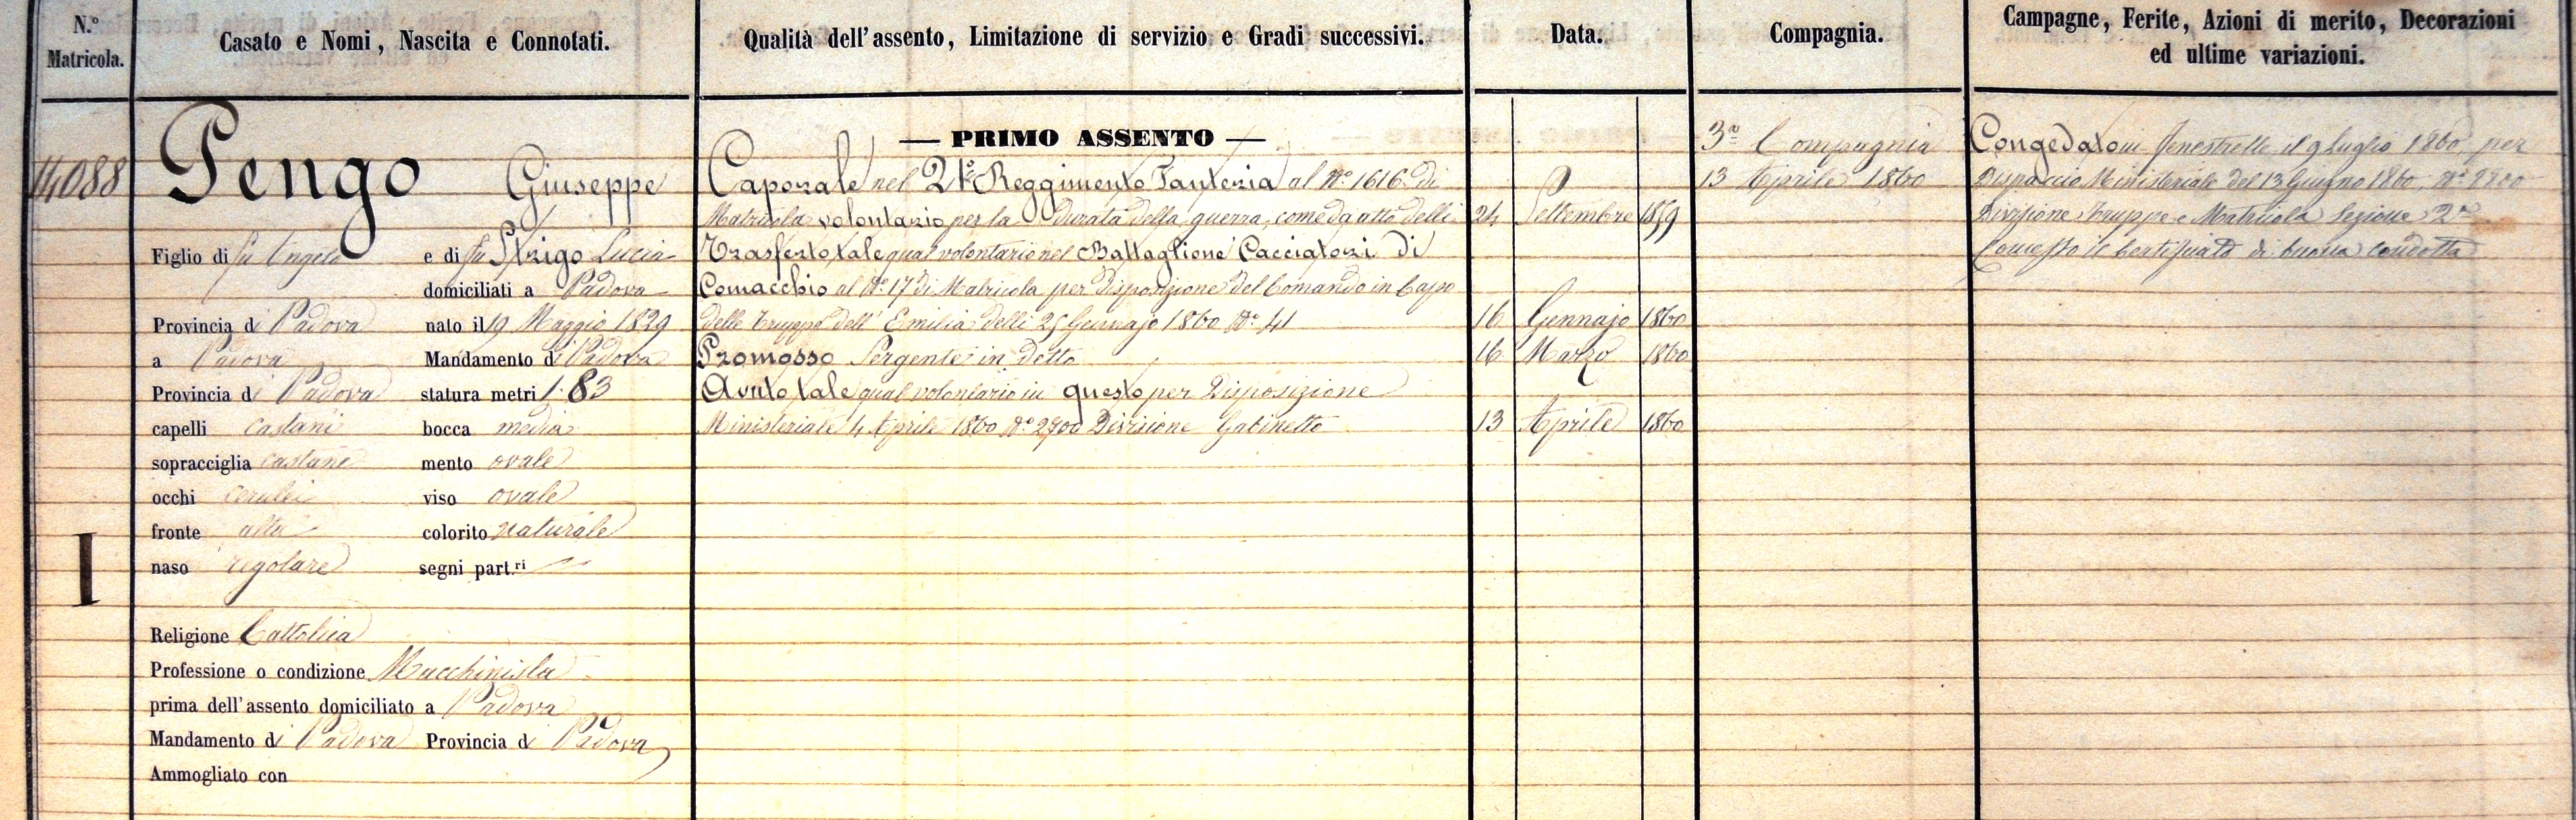 N.° Matricola.
Casato e Nomi, Nascita e Connotati.
Qualità dell'assento, Limitazione di servizio e Gradi successivi.
Data.
Compagnia.
Campagne, Ferite, Azioni di merito, Decorazioni
ed ultime variazioni.
14088
Pengo Giuseppe
Figlio di fu Angelo e di fu Strigo Lucia
domiciliati a Padova
Provincia di Padova nato il 19 Maggio 1829
a Padova Mandamento di Padova
Provincia di Padova statura metri 1.83
capelli castani bocca media
sopracciglia castane mento ovale
occhi cerulei viso ovale
fronte alta colorito naturale
naso regolare segni part.ri
I
Religione Cattolica
Professione o condizione Macchinista
prima dell'assento domiciliato a Padova
Mandamento di Padova Provincia di Padova
Ammogliato con
— PRIMO ASSENTO —
Caporale nel Reggimento Fanteria al N.° 1616 di
Matricola volontario per la durata della guerra, come da atto delli 24 Settembre 1859
Trasferto tale qual volontario nel Battaglione Cacciatori di
Comacchio al N.° 17 di Matricola per Disposizione del Comando in Capo
delle Truppe dell'Emilia delli 25 Gennajo 1860 N.° 41 16 Gennajo 1860
Promosso Sergente in detto 16 Marzo 1860
Avuto tale qual volontario in questo per Disposizione
Ministeriale 4 Aprile 1860 N.° 2900 Divisione Gabinetto 13 Aprile 1860
3a Compagnia
13 Aprile 1860
Congedato in Fenestrelle il 9 Luglio 1860, per
Dispaccio Ministeriale del 13 Giugno 1860, N.°
Divisione Truppe e Matricola Sezione 2a
Concesso il Certificato di buona condotta